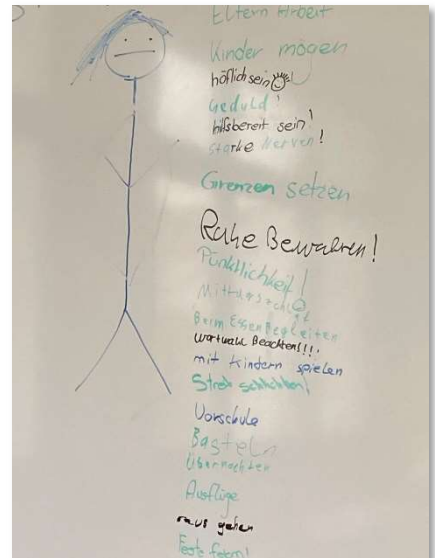 Eltern Arbeit
Kinder mögen
höflich sein!
Geduld!
hilfsbereit sein!
starke Nerven!
Grenzen setzen
Ruhe Bewahren!
Pünktlichkeit!
Mittagsschlaf
Beim Essen Begleiten
Wortwahl Beachten!!!!
mit Kindern spielen
Streit schlichten!
Vorschule
Basteln
Übernachten
Ausflüge
raus gehen
Feste